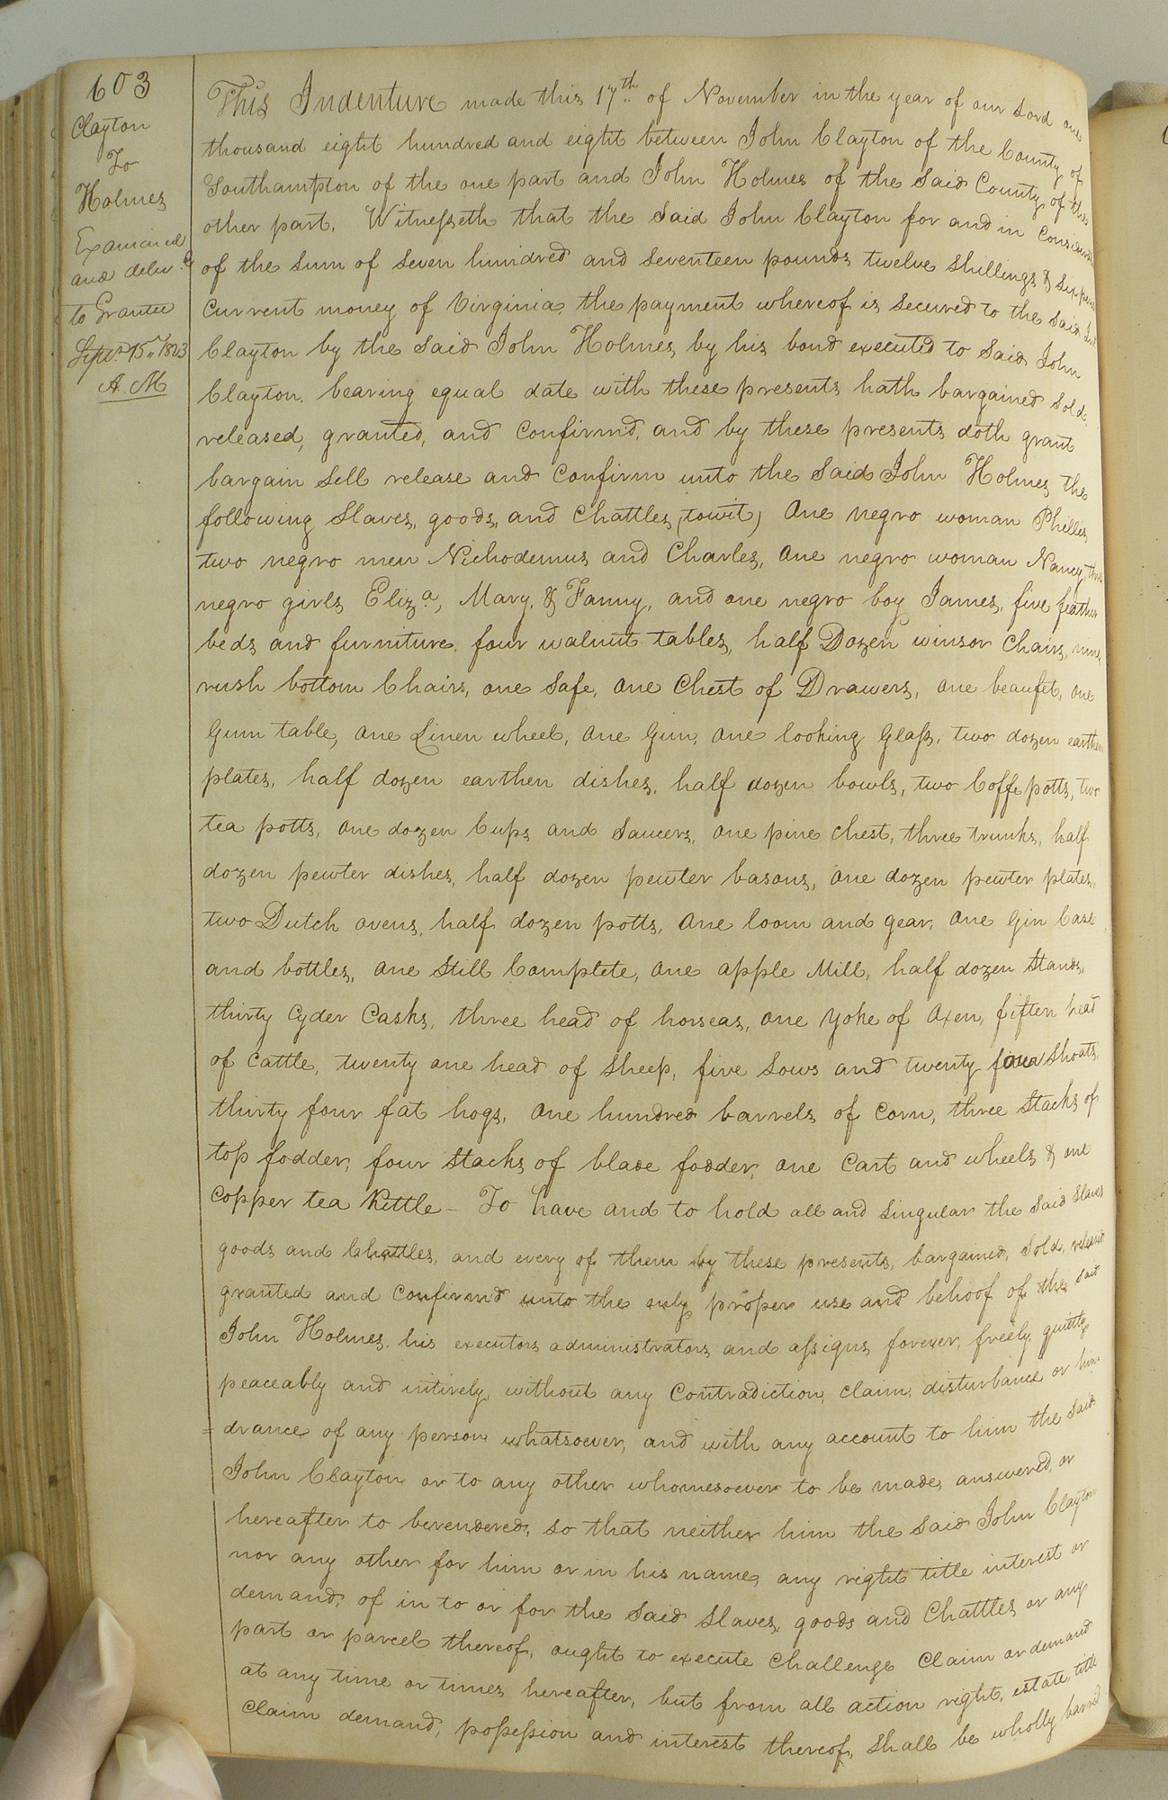 603
Clayton
To
Holmes
Examined
and deliv.d
to Grantee
Sept. 15" 1823
A. M
This Indenture made this 17th of November in the year of our Lord one
thousand eight hundred and eight between John Clayton of the County of
Southampton of the one part and John Holmes of the said County of the
other part. Witnesseth that the said John Clayton for and in
of the sum of seven hundred and seventeen pounds twelve shillings &
current money of Virginia the payment whereof is secured to the said
Clayton by the said John Holmes by his bond executed to said John
Clayton, bearing equal date with these presents hath bargained sold,
released, granted, and confirmd, and by these presents doth grant
bargain sell release and confirm unto the said John Holmes the
following slaves, goods, and chattles, (towit) One negro woman Phillis
two negro men Nichodemus and Charles, one negro woman Nancy, three
negro girls Eliz.a, Mary, & Fanny, and one negro boy James, five feather
beds and furniture, four walnut tables, half Dozen winsor chairs, nine
rush bottom Chairs, one safe, one chest of Drawers, one beaufet, one
Gum table, one Linen wheel, one Gun, one looking Glass, two dozen earthen
plates, half dozen earthen dishes, half dozen bowls, two Coffe potts, two
tea potts, one dozen Cups and saucers, one pine chest, three trunks, half
dozen pewter dishes, half dozen pewter basons, one dozen pewter plates,
two Dutch ovens, half dozen potts, one loom and gear, one Gin Case
and bottles, one still Complete, one apple Mill, half dozen stands,
thirty Cyder Casks, three head of horseas, one yoke of Oxen, fiften head
of cattle, twenty one head of sheep, five sows and twenty four shoats
thirty four fat hogs, one hundred barrels of corn, three stacks of
top fodder, four stacks of blade fodder, one cart and wheels & one
copper tea kettle – To have and to hold all and singular the said slaves
goods and Chattles, and every of them by these presents, bargained, sold, released
granted and confirmd unto the only proper use and behoof of the said
John Holmes, his executors administrators and assigns forever, freely, quietly
peaceably and intirely, without any contradiction, claim, disturbance or hin
=drance of any person whatsoever, and with any account to him the said
John Clayton or to any other whomesoever to be made, answered, or
hereafter to berendered, so that neither him the said John Clayton
nor any other for him or in his name, any right title interest or
demand, of in to or for the said slaves, goods and Chattles or any
part or parcel thereof, ought to execute challenge claim or demand
at any time or times hereafter, but from all action right, estate, title
claim demand, possession and interest thereof, shall be wholly barred